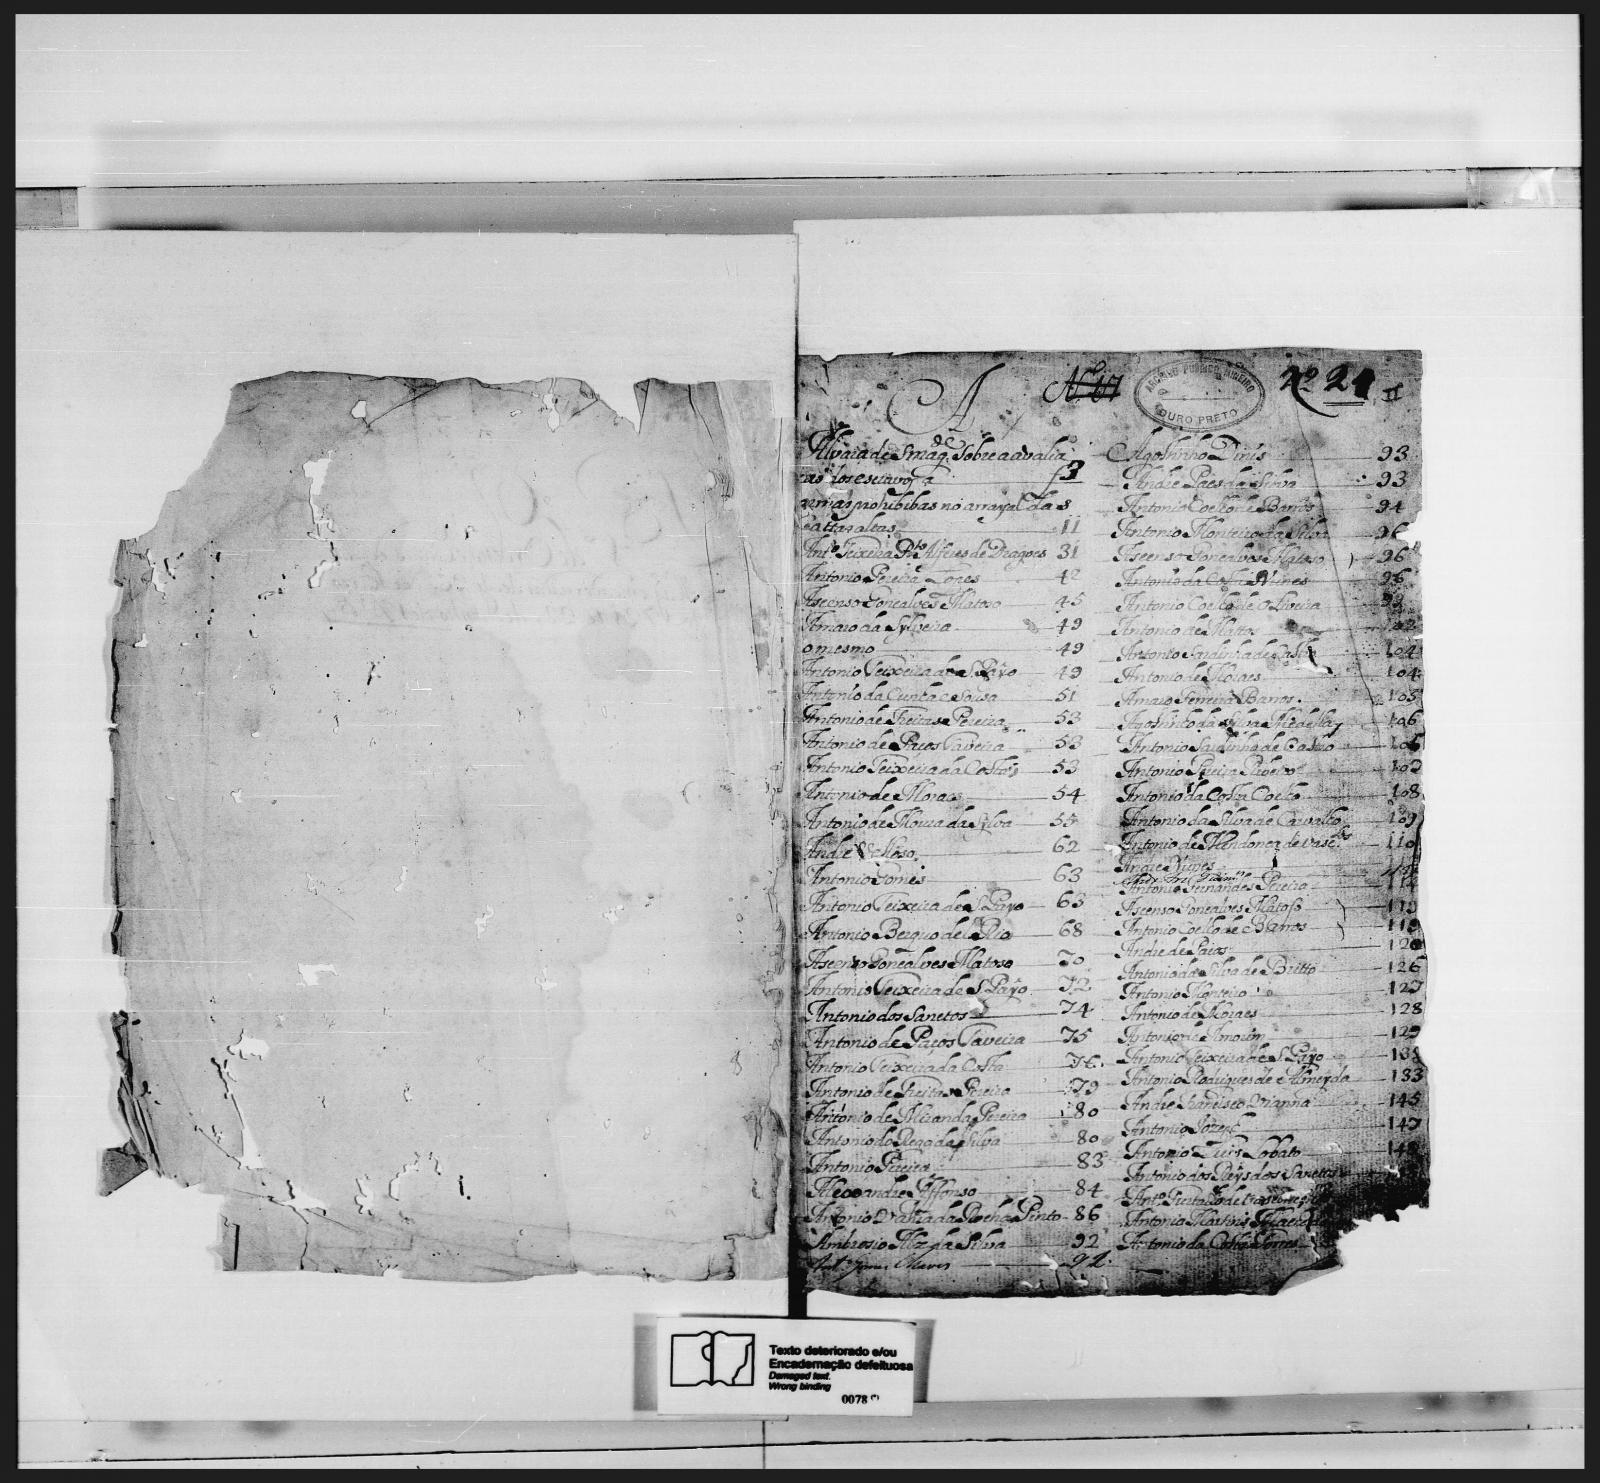 A
No. 61
ARCHIVO PUBLICO MINEIRO
OURO PRETO
No 24
II
Alvará de S. Mag.de sobre a avalia
dos escravos a f 3
armas prohibibas no arrayal das
Mattas altas 11
Anto. Teixeira Pto. Alferes de Dragoes 31
Antonio Pereira Lopes 42
Ascenso Gonçalves Matoso 45
Amaro da Sylveira 49
o mesmo 49
Antonio Teixeira de S. Payo 49
Antonio da Cunha e Sousa 51
Antonio de Freitas Pereira 53
Antonio de Paços Taveira 53
Antonio Teixeira da Costa 53
Antonio de Moraes 54
Antonio de Moura da Sylva 55
Andre Velloso 62
Antonio Gomes 63
Antonio Teixeira de S. Payo 63
Antonio Berquo del Rio 68
Ascenso Gonçalves Matoso 70
Antonio Teixeira de S. Payo 72
Antonio dos Sanctos 74
Antonio de Paços Taveira 75
Antonio Teixeira da Costa 76
Antonio de Freitas Pereira 79
Antonio de Miranda Pereira 80
Antonio do Rego da Silva 80
Antonio Pereira 83
Alexandre Affonso 84
Antonio da Rocha Pinto 86
Ambrosio Alz da Silva 92
92
Agostinho Dinis 93
Andre Paes da Silva 93
Antonio Coelho de Barros 94
Antonio Monteiro da Silva 96
Ascenso Gonçalves Matoso 96
Antonio da Costa Nunes 96
Antonio Coelho de Oliveira
Antonio de Mattos 102
Antonio Sardinha de Castro 104
Antonio de Moraes 104
Amaro Ferreira Barros 105
Agostinho da Silva Medella 106
Antonio Sardinha de Castro 106
Antonio Pereira Ribeiro 107
Antonio da Costa Coelho 108
Antonio da Silva de Carvalho 109
Antonio de Mendonça de Vasc.los 110
Andre Nunes
Antonio Fernandes Pereira 114
Ascenso Gonçalves Matoso 119
Antonio Coelho de Barros 119
Andre de Paços 120
Antonio da Silva de Britto 126
Antonio Monteiro 127
Antonio de Moraes 128
Antonio de Amorim 129
Antonio Teixeira de S. Payo
Antonio Rodrigues de Almeyda 133
Andre Francisco Vianna 145
Antonio Jozeph 147
Antonio Luis Lobato
Antonio dos Reys dos Sanctos
Anto. Furtado de
Antonio Martins Machado
Antonio da Costa Torres
Texto deteriorado e/ou
Encadernação defeituosa
Damaged text.
Wrong binding
0078